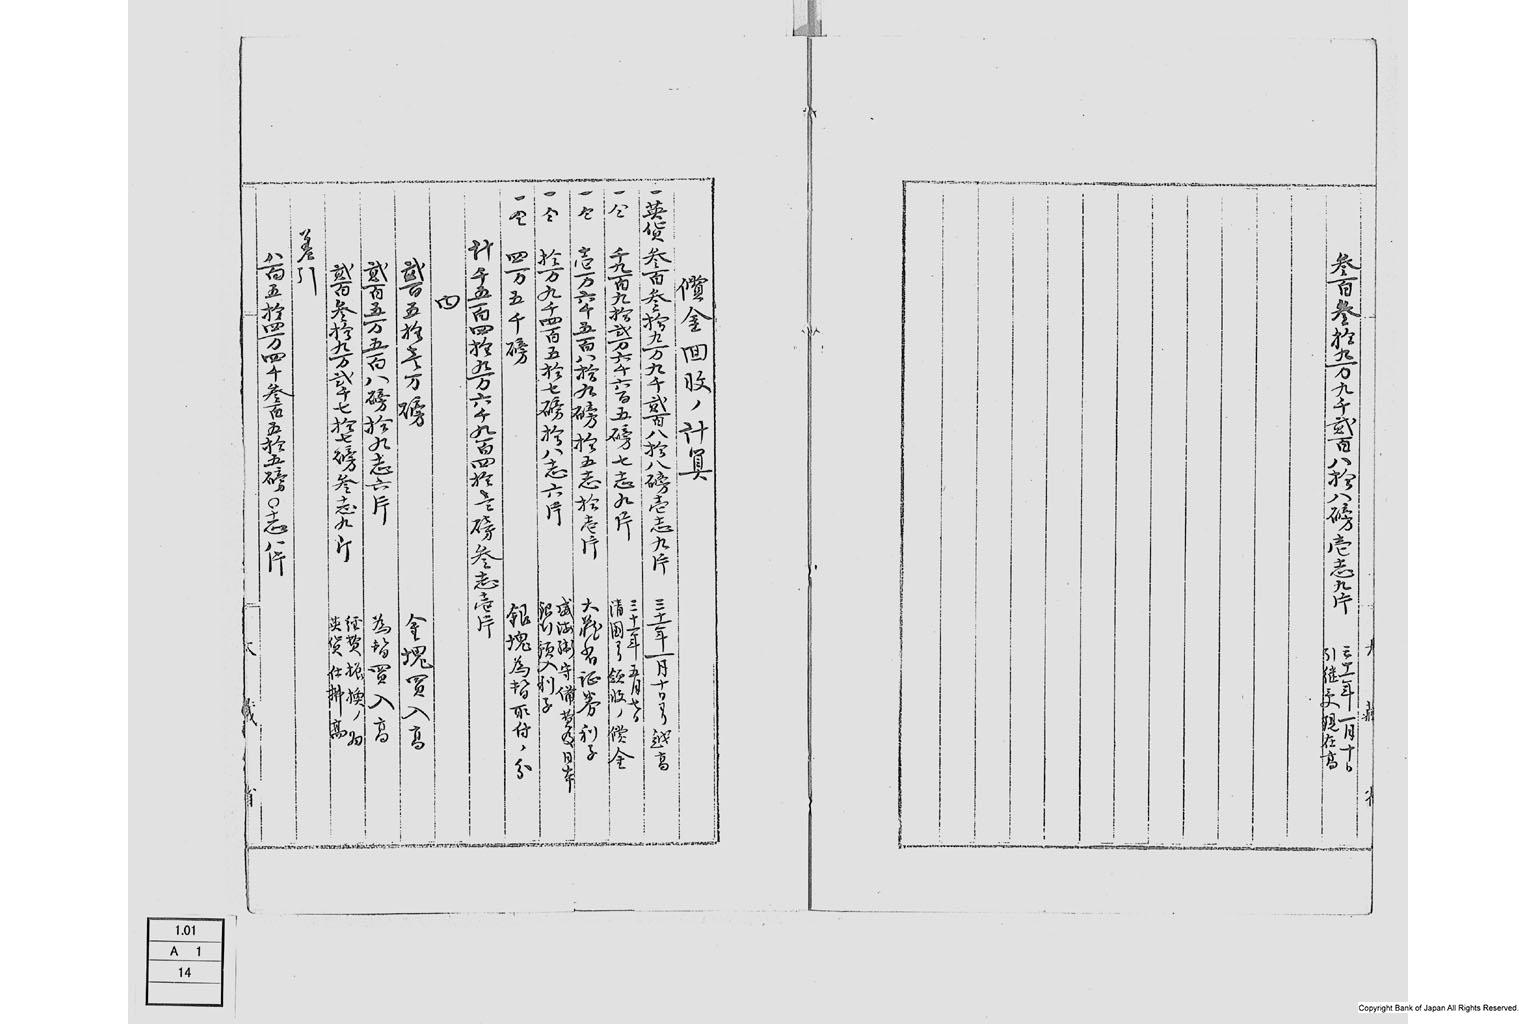 参百参拾九万九千弐百八拾八磅壱志九片
三十一年一月十日
引継走現在高
償金回収ノ計算
一英貨参百参拾九万九千弐百八拾八磅壱志九片
三十一年一月十日ヨリ越高
一仝
千九百九拾弐万六千六百五磅七志九片
三十一年五月七日
清国ヨリ領収ノ償金
一仝
壱万六千五百八拾九磅拾五志拾壱片
大蔵省証券利子
一仝
拾万九千四百五拾七磅拾八志六片
威海衛守備費日本
銀行預入利子
一仝
四万五千磅
銀塊為替取付ノ分
計
千五百四拾九万六千九百四拾壱磅参志壱片
内
弐百五拾壱万磅
金塊買入高
弐百五万五百八磅拾九志六片
為替買入高
弐百参拾九万弐千七拾七磅参志九片
経費振換ノ為
英貨仕払高
差引
八百五拾四万四千参百五拾五磅〇志八片
大蔵省
1.01
A 1
14
Copyright Bank of Japan All Rights Reserved.